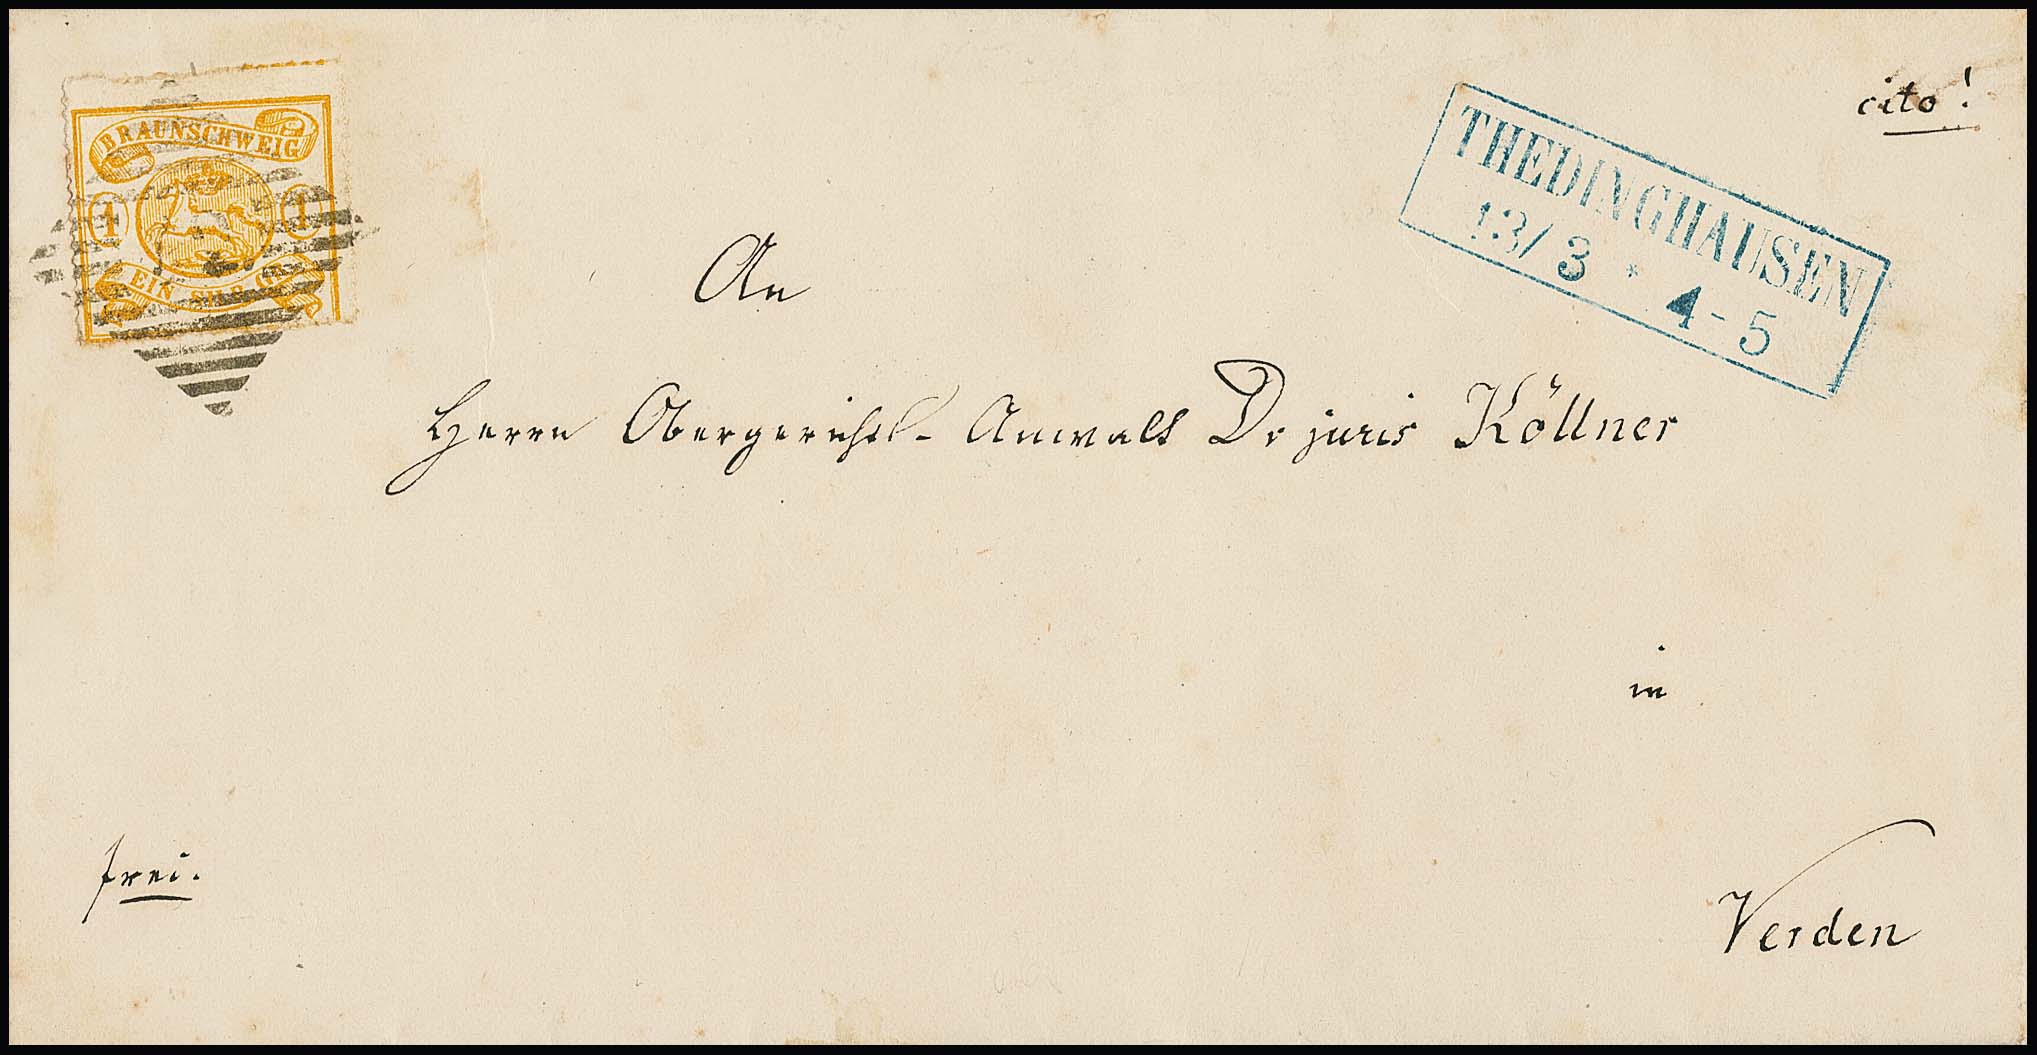 cito!
BRAUNSCHWEIG
1 1
EIN SILB.GR.
THEDINGHAUSEN
13/3 * 4-5
An
Herrn Obergerichts-Anwalt Dr juris Köllner
in
Verden
frei.